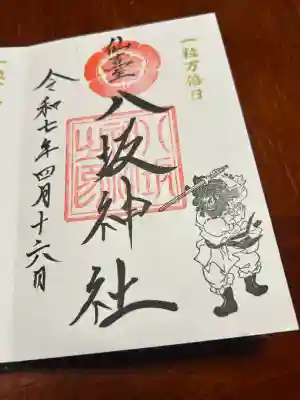 一粒万倍日
仙臺
八坂神社
令和七年四月十六日